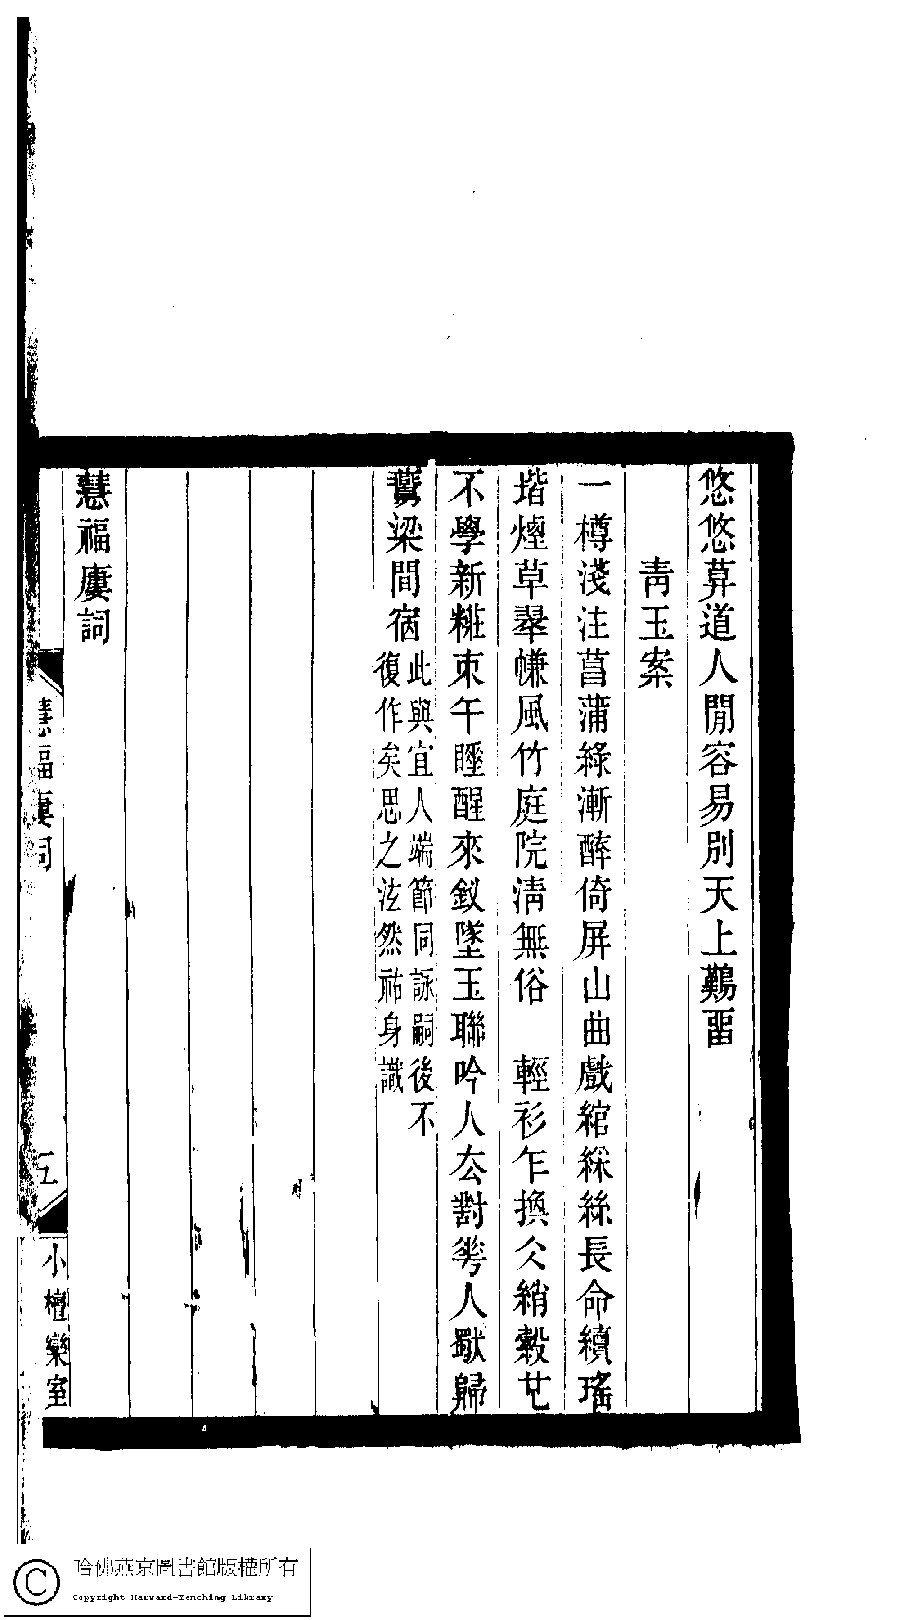 悠悠算道人閒容易別天上鷄畱
青玉案
一樽淺注菖蒲綠漸醉倚屏山曲戲綰綵絲長命續瑤
堦煙草翠㡘風竹庭院淸無俗　輕衫乍換仌綃縠廿
不學新糚束午睡醒來釵墜玉聯吟人厺對𠌶人歇歸
鷰梁間宿
此與宜人端節同詠嗣後不
復作矣思之泫然祐身識
慧福廔詞
慧福廔詞
五
小檀欒室
哈佛燕京圖書館版權所有
Copyright Harvard-Yenching Library